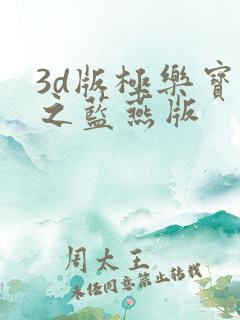 3d版極樂寶
之藍燕版
周太王
未经同意禁止转载